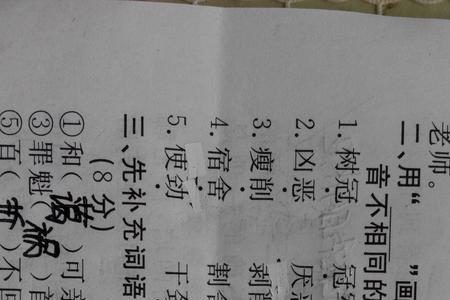 老师。
二、用“ ”画
音不相同的
1.树冠 冠
2.凶恶 厌
3.瘦削 剥
4.宿舍 割
5.使劲 干
三、先补充词语
(8分)
①和(蔼)可
③罪魁(祸)
⑤百(折)不